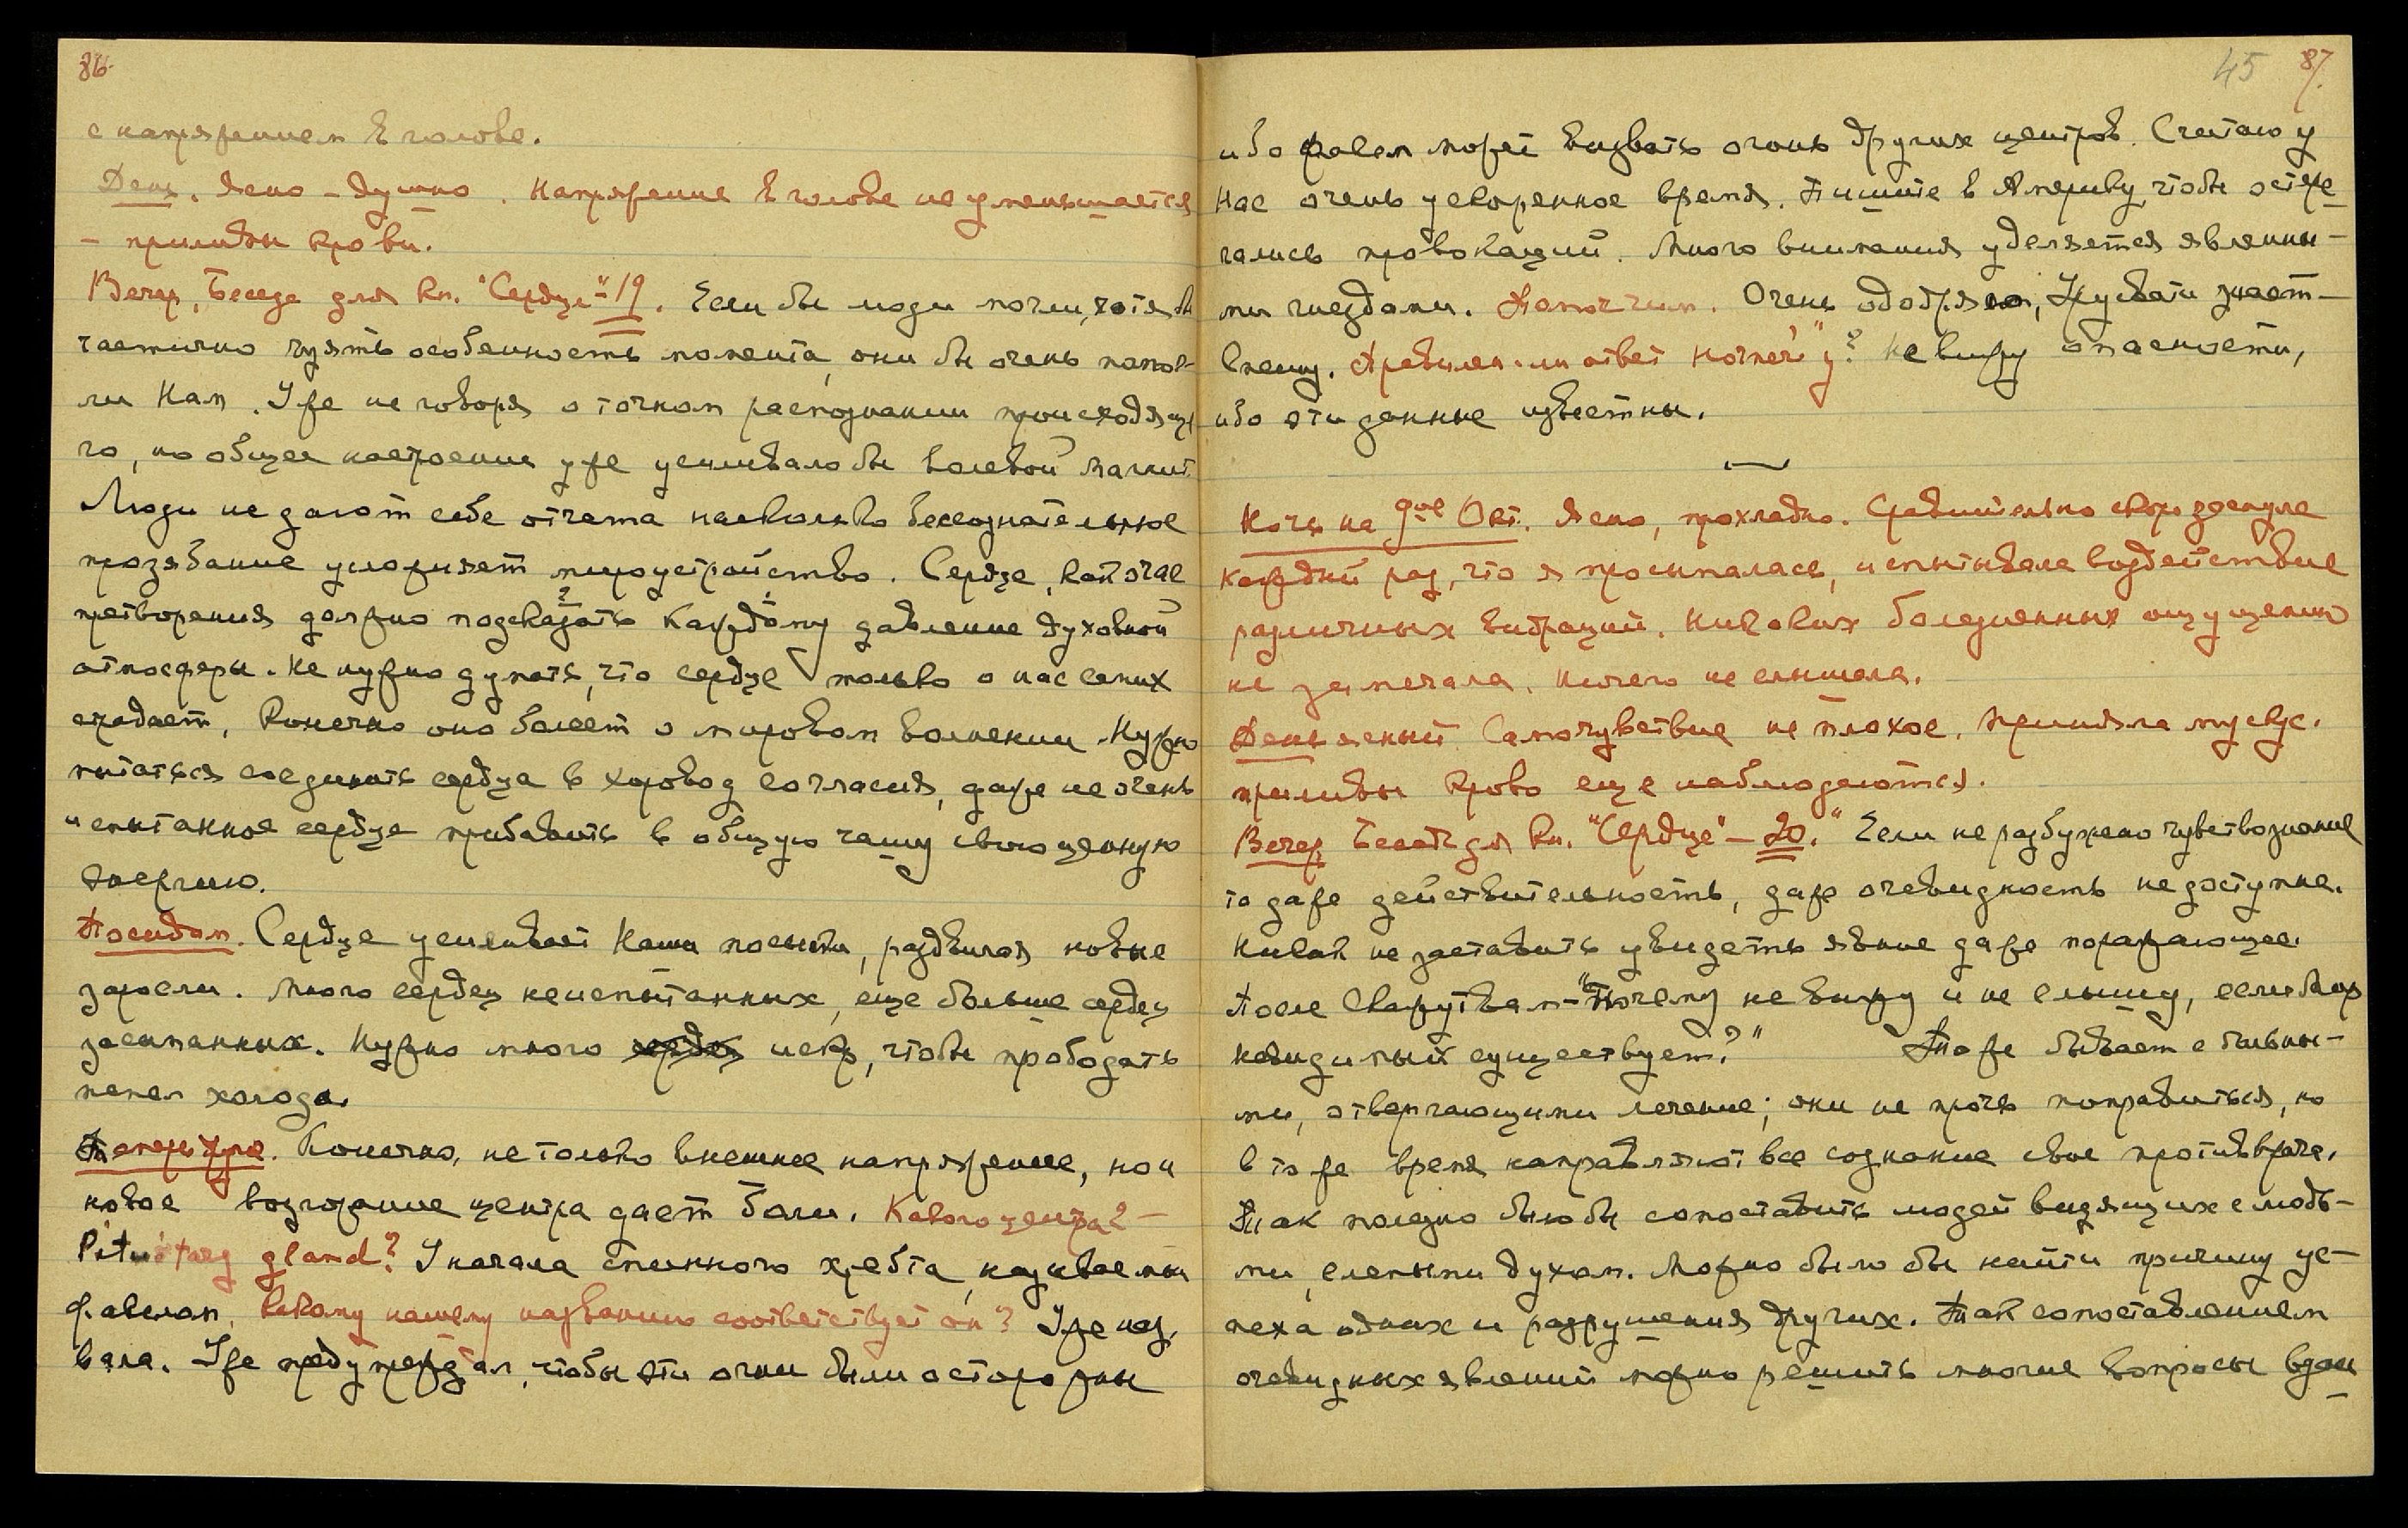 86.
с напряжением в голове.
День. Ясно – душно. Напряжение в голове не уменьшается
– приливы крови.
Вечер, Беседа для кн. "Сердце" – 19. Если бы люди могли, хотя бы
частично чуять особенность момента, они бы очень помог-
ли Нам. Уже не говоря о точном распознании происходяще
го, но общее настроение уже усиливало бы волевой магнит.
Люди не дают себе отчета насколько бессознательное
прозябание усложняет мироустройство. Сердце, как очаг
претворения должно подсказать каждому давление духовной
атмосферы. Не нужно думать, что сердце только о нас самих
страдает, конечно оно болеет о мировом волнении. Нужно
пытаться соединить сердца в хоровод согласия, даже не очень
испытанное сердце прибавить в общую чашу свою ценную
энергию.
Посидом. Сердце усиливает Наши посылки, раздвигая новые
заросли. Много сердец неиспытанных, еще больше сердец
засыпанных. Нужно много сердец искр, чтобы прободать
пепел холода.
Температура. Конечно, не только внешнее напряжение, но и
новое возгорание центра дает боли. Какого центра? –
Pituitary gland? У начала спинного хребта, называемый
флавелом. Какому нашему названию соответствует он? Уже наз.
вала. Уже предупреждал, чтобы эти огни были осторожны
45 87.
ибо флавел может вызвать огонь других центров. Считаю у
Нас очень ускоренное время. Пишите в Америку, чтобы остере
гались провокаций. Много внимания уделяется явленны-
ми гнездами. Очень одобряю,
спешу. Правилен-ли ответ Horner'у"? Не вижу опасности,
ибо эти данные известны.
—
Ночь на 9ое Окт. Ясно, прохладно. Сравнительно скоро заснула
каждый раз, что я просыпалась, испытывала воздействие
различных вибраций. Никаких болезненных ощущений
не замечала. Ничего не слышала.
День ясный. Самочувствие не плохое. Приняла мускус.
приливы крови еще наблюдаются.
Вечер Беседа для кн. "Сердце" – 20." Если не разбужено чувствознание
то даже действительность, даже очевидность недоступна.
Никак не заставить увидеть явные даже поражающее.
После скажут Вам – "Почему не вижу и не слышу, если Мир
невидимый существует?" Тоже бывает с больны-
ми, отвергающими лечение; они не прочь поправиться, но
в то же время направляют все сознание свое против врача.
Так полезно было бы сопоставить людей видящих с людь-
ми, слепыми духом. Можно было бы найти причину ус-
пеха одних и разрушения других. Так сопоставлением
очевидных явлений можно решить многие вопросы вдали